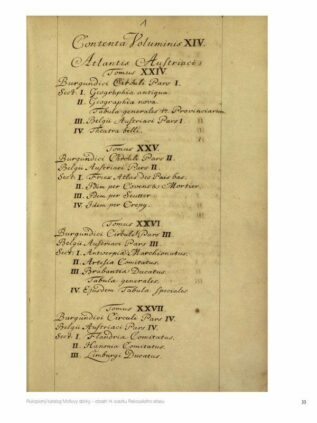 1
Contenta Voluminis XIV.
Atlantis Austriaci
Tomus XXIV
Burgundici Circuli Pars I.
Sect. I. Geographia antiqua
II. Geographia nova
Tabula generales et Provinciarum
III. Belgii Austriaci Pars I
IV. Theatra belli.
Tomus XXV.
Burgundici Circuli Pars II.
Belgii Austriaci Pars II.
Sect. I. Friex Atlas des Pais bas.
II. Idem per Covens & Mortier.
III. Idem per Seutter
IV. Idem per Crepy.
Tomus XXVI
Burgundici Circuli Pars III.
Belgii Austriaci Pars III.
Sect. I. Antverpia Marchionatus.
II. Artesia Comitatus.
III. Brabantia Ducatus.
Tabula generales.
IV. Ejusdem Tabula speciales
Tomus XXVII
Burgundici Circuli Pars IV.
Belgii Austriaci Pars IV.
Sect. I. Flandria Comitatus.
II. Hannonia Comitatus.
III. Limburgi Ducatus.
Rukopisný katalog Mollovy sbírky – obsah 14. svazku Rakouského atlasu.
33